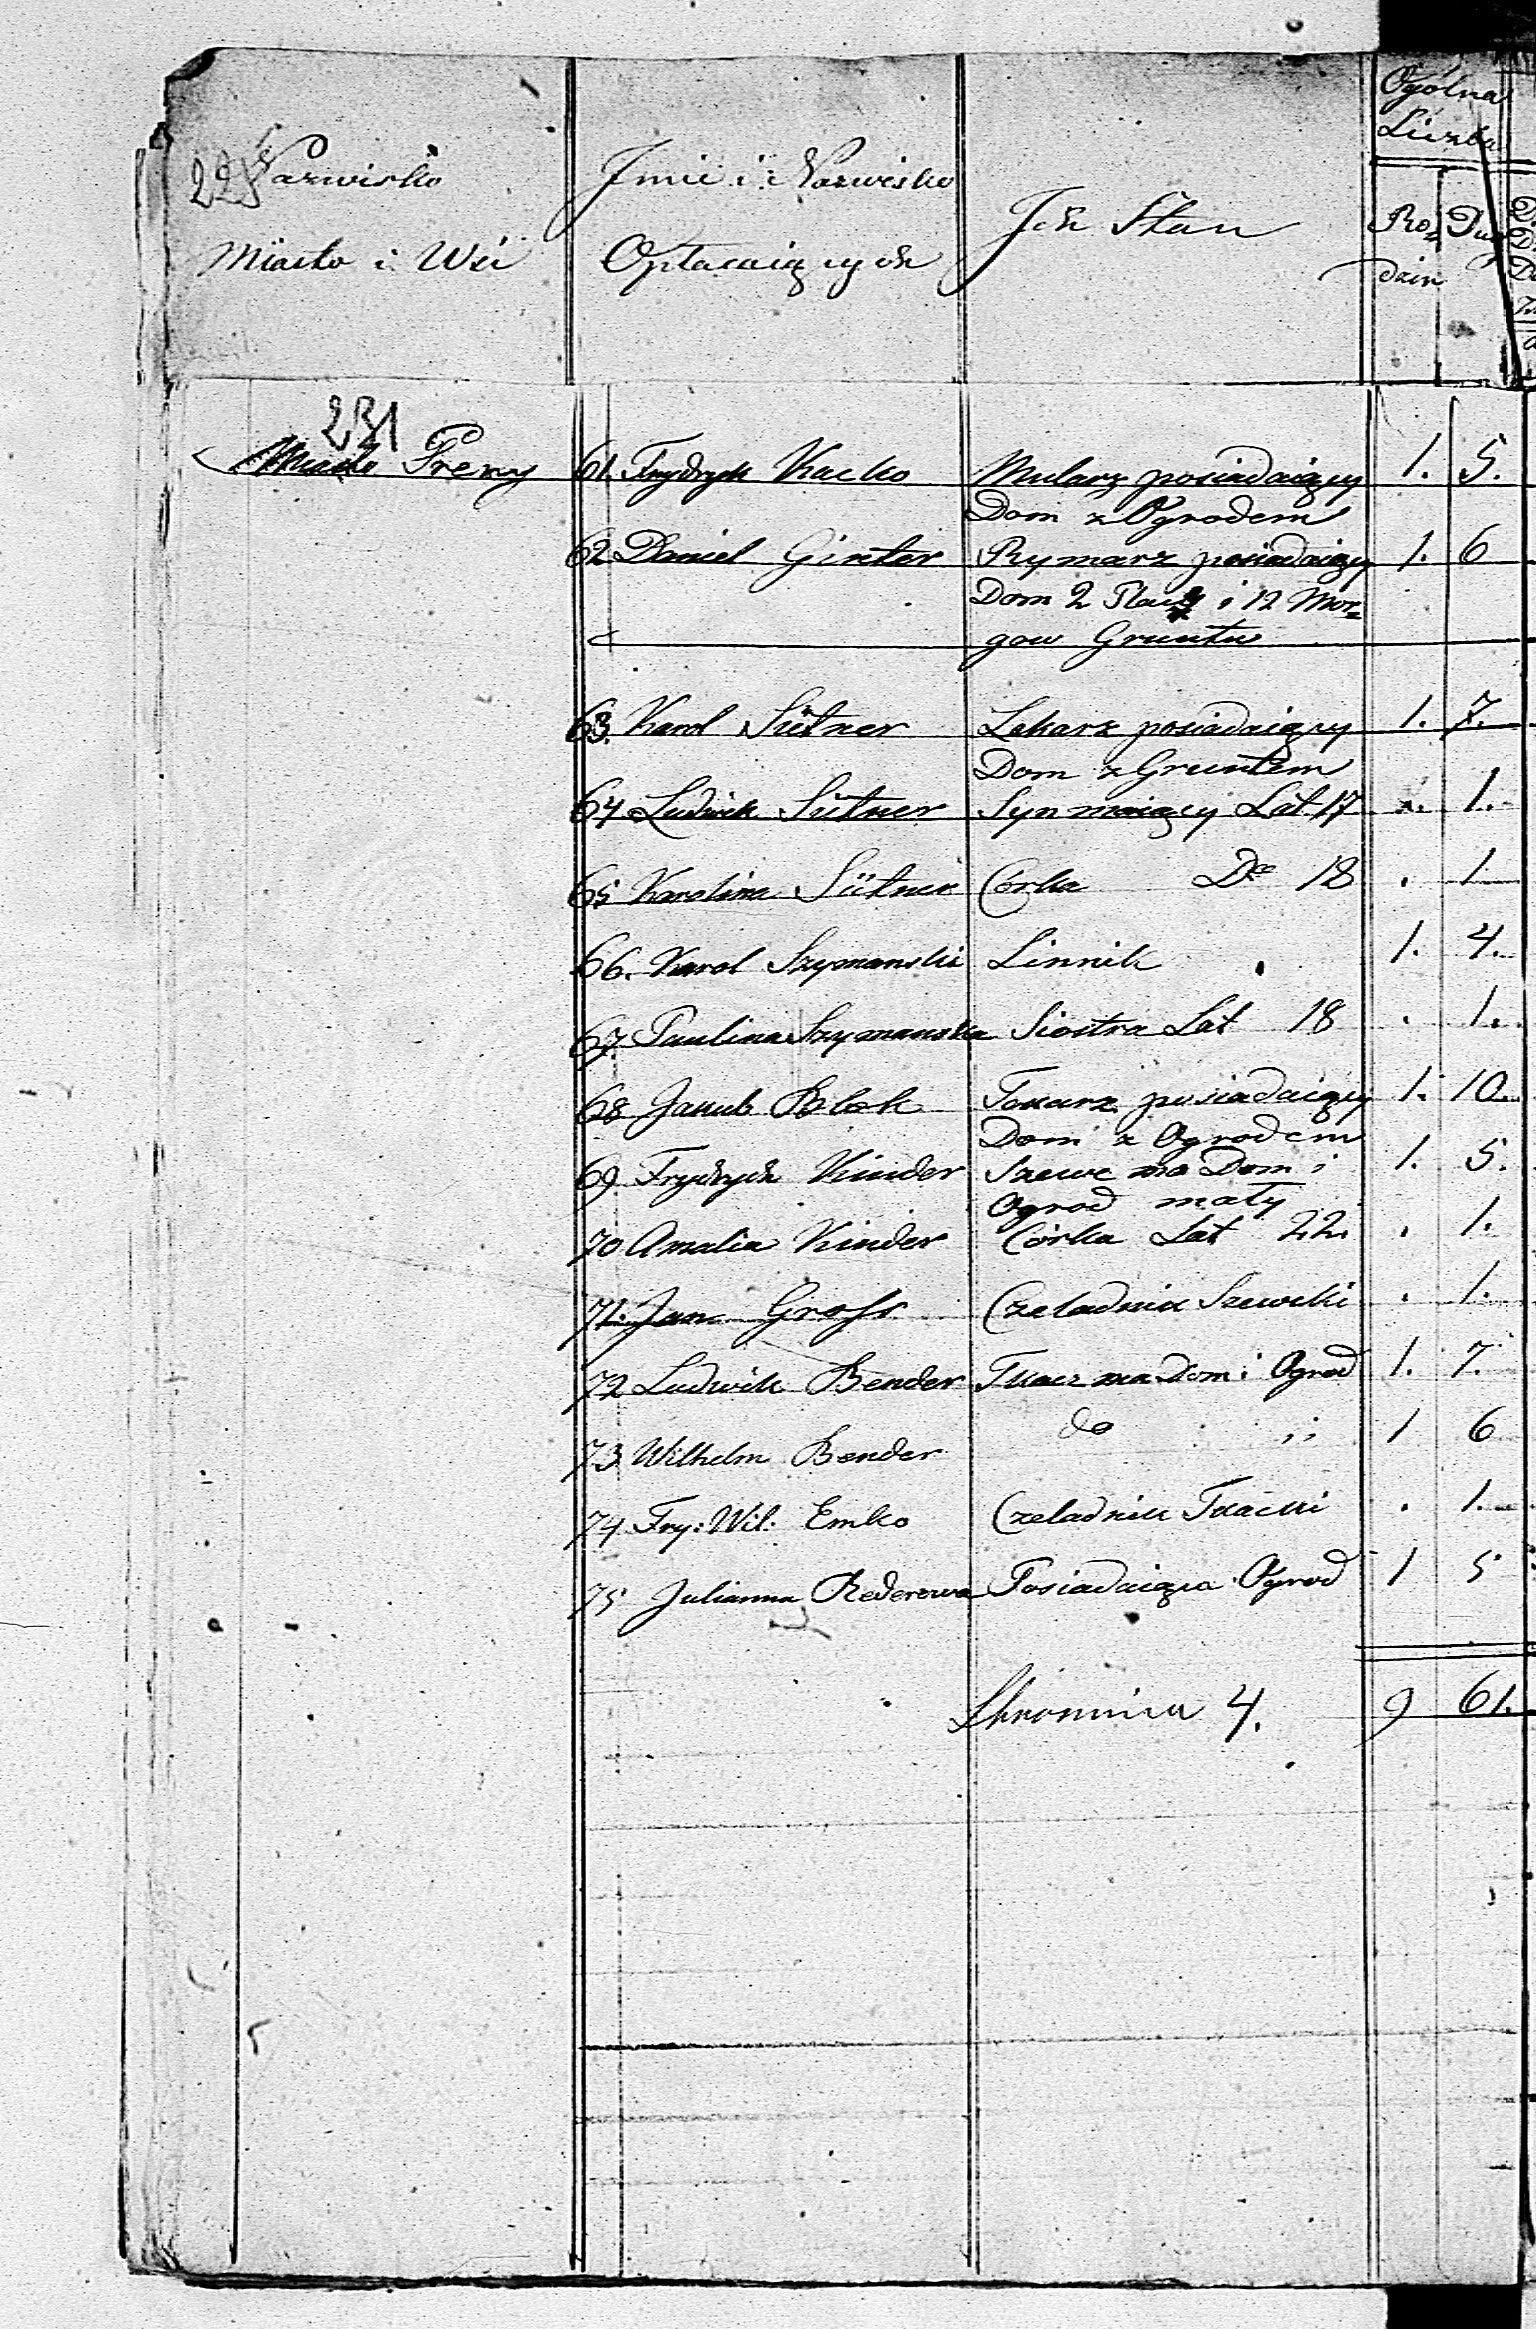 Ogólna
Liczba
225 Nazwisko Jmie i Nazwisko
Jch Stan Ro= Dusz
Miasto i Wsi Opłacaiących dzin
231
Miasto Preny 61. Frydrych Kacko Mularz posiadaiący 1. 5.
Dom z Ogrodem
62 Daniel Ginter Rymarz posiadaiący 1. 6
Dom 2 Place i 12 Mor=
gow Gruntu
63. Karol Sütner Lekarz posiadaiący 1. 7.
Dom z Gruntem
64 Ludwik Sütner Syn maiący Lat 17 . 1.
65 Karolina Sütner Córka Do 18 . 1
66. Karol Szymanski Linnik 1. 4.
67. Paulina Szymanska Siostra Lat 18 . 1.
68 Jakub Blok Tokarz posiadaiący 1. 10.
Dom z Ogrodem
69. Frydrych Kinder Szewc ma Dom i 1. 5.
Ogrod mały
70 Amalia Kinder Córka Lat 22. . 1.
71. Jan Grofs Czeladnik Szewcki . 1.
72 Ludwik Bender Tkacz ma Dom i Ogrod 1. 7.
73 Wilhelm Bender do 1 6
74 Fry: Wil: Emko Czeladnik Tkacki . 1.
75 Julianna Rederowa Posiadaiąca Ogrod 1 5
Stronnica 4. 9 61.